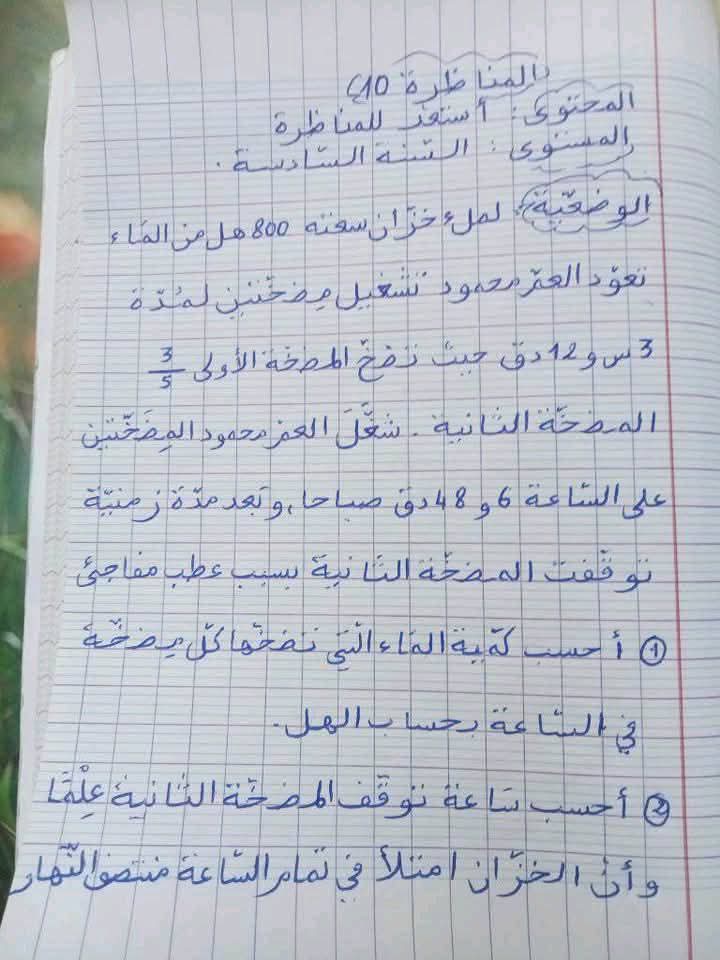 المناظرة 10
المحتوى: أستعدّ للمناظرة
المستوى: السّنة السّادسة.
الوضعيّة: لملء خزّان سعته 800 هل من الماء
تعوّد العمّ محمود تشغيل مضختين لمُدّة
3 س و 12 دق حيث تضخّ المضخة الأولى 3/5
المضخّة الثانية. شغَّلَ العمّ محمود المِضَخّتين
على السّاعة 6 و 48 دق صباحا، وبعد مدّة زمنيّة
توقّفت المضخّة الثّانية بسبب عطب مفاجئ
① أحسب كمّية الماء الّتي تضخّها كلّ مِضخّة
في السّاعة بحساب الهل.
② أحسب سَاعة توقّف المضخّة الثّانية عِلْمًا
وأنّ الخزّان امتلأ في تمام السّاعة منتصف النّهار